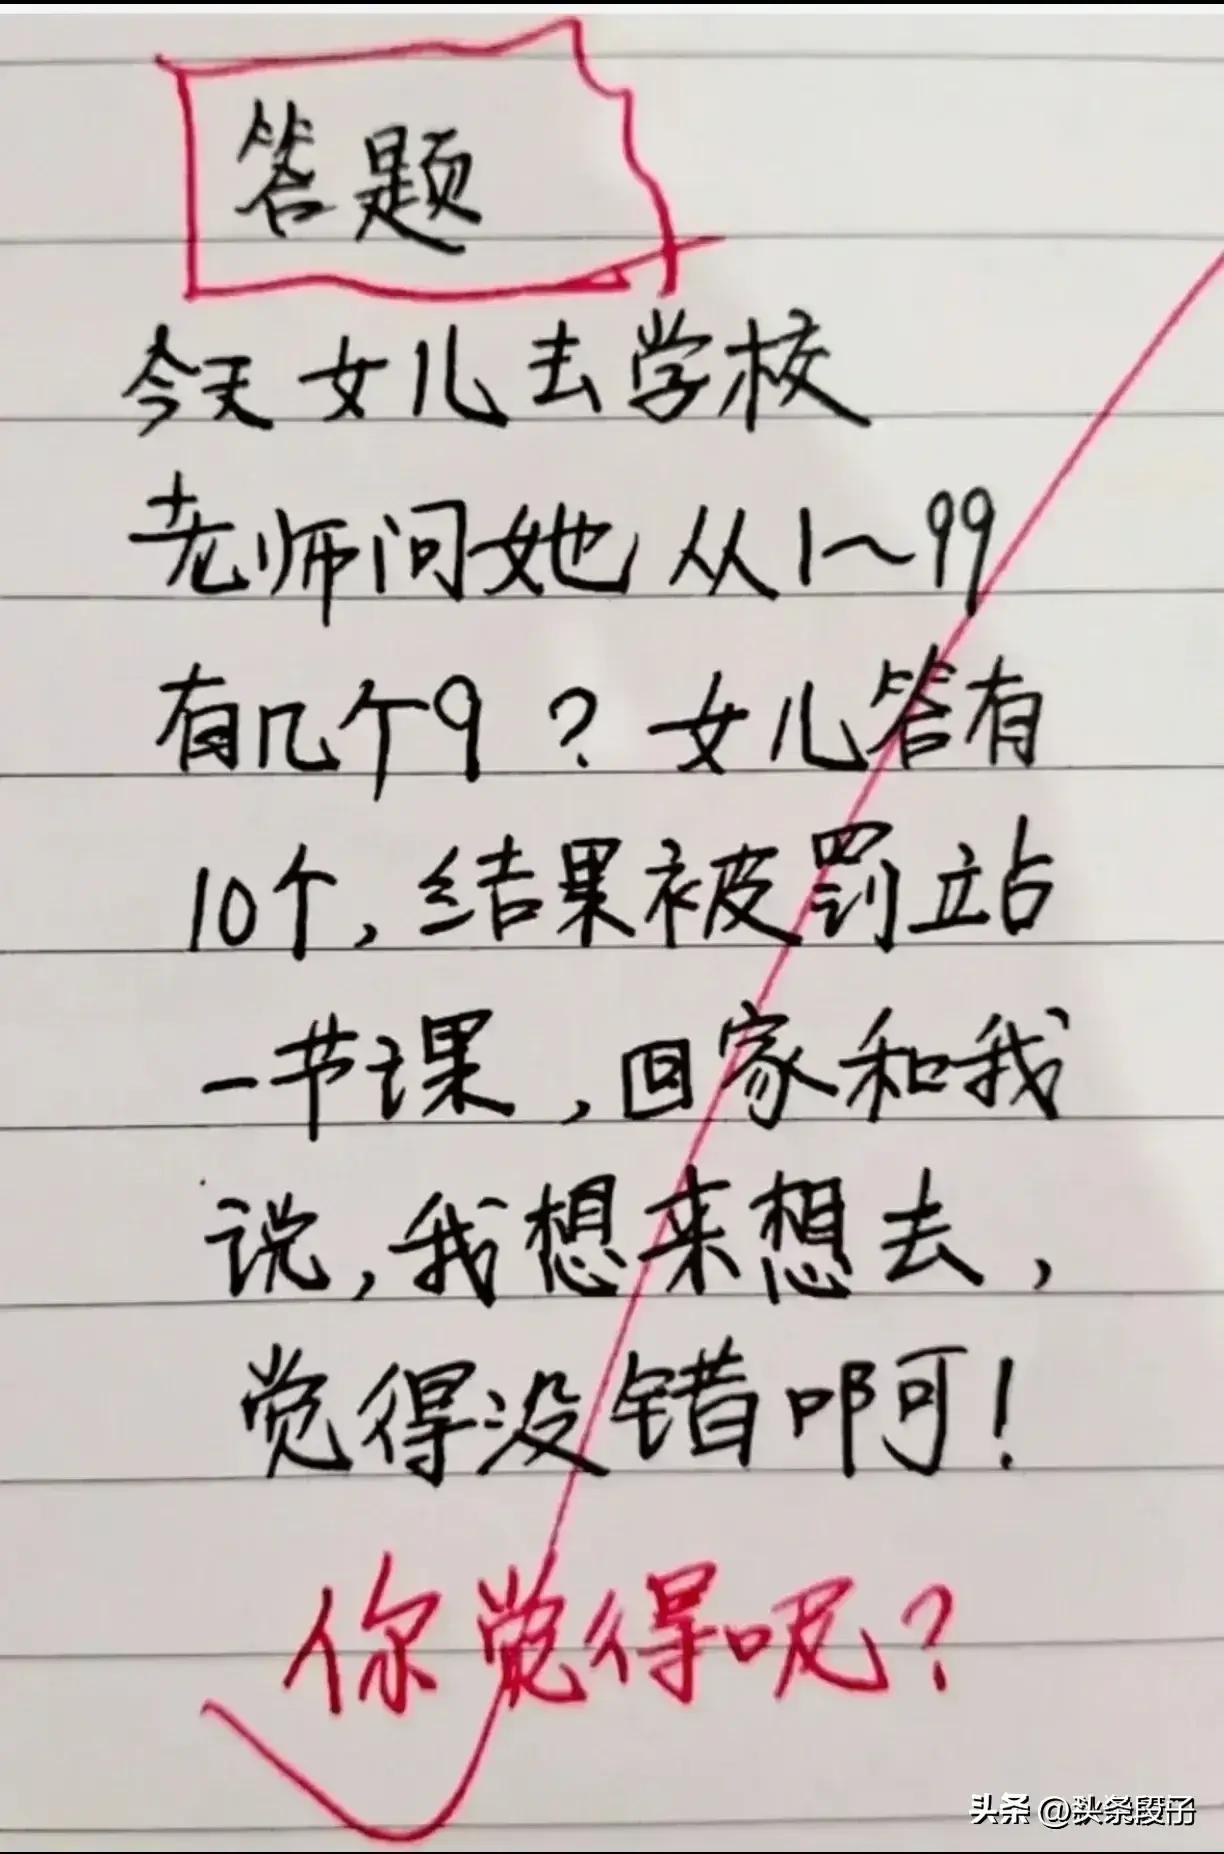 答题
今天女儿去学校
老师问她从1～99
有几个9？女儿答有
10个，结果被罚立占
一节课，回家和我
说，我想来想去，
觉得没错啊！
你觉得呢？
头条 @头条段子